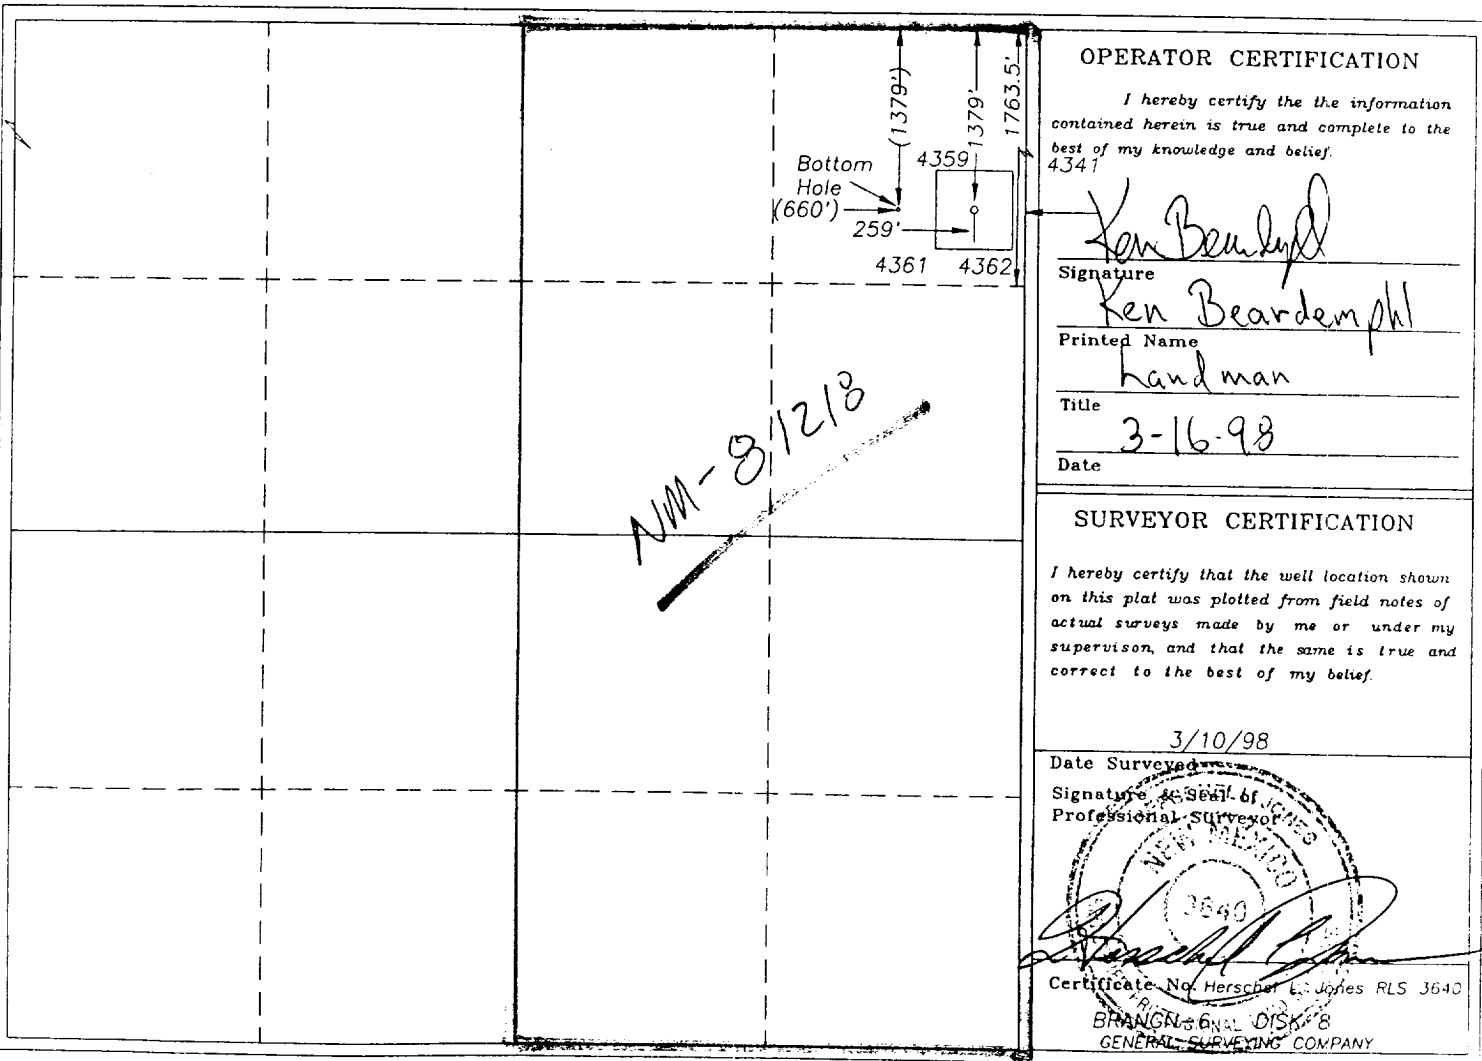 (1379')
1379'
1763.5'
Bottom
Hole
(660')
259'
4359
4341
4361
4362
NM-81218
OPERATOR CERTIFICATION
I hereby certify the the information
contained herein is true and complete to the
best of my knowledge and belief.
Signature
Ken Beardemphl
Printed Name
Landman
Title
3-16-98
Date
SURVEYOR CERTIFICATION
I hereby certify that the well location shown
on this plat was plotted from field notes of
actual surveys made by me or under my
supervison, and that the same is true and
correct to the best of my belief.
3/10/98
Date Surveyed
Signature & Seal of
Professional Surveyor
JONES
NEW MEXICO
3640
Certificate No. Herschel L. Jones RLS 3640
DISK 8
GENERAL SURVEYING COMPANY